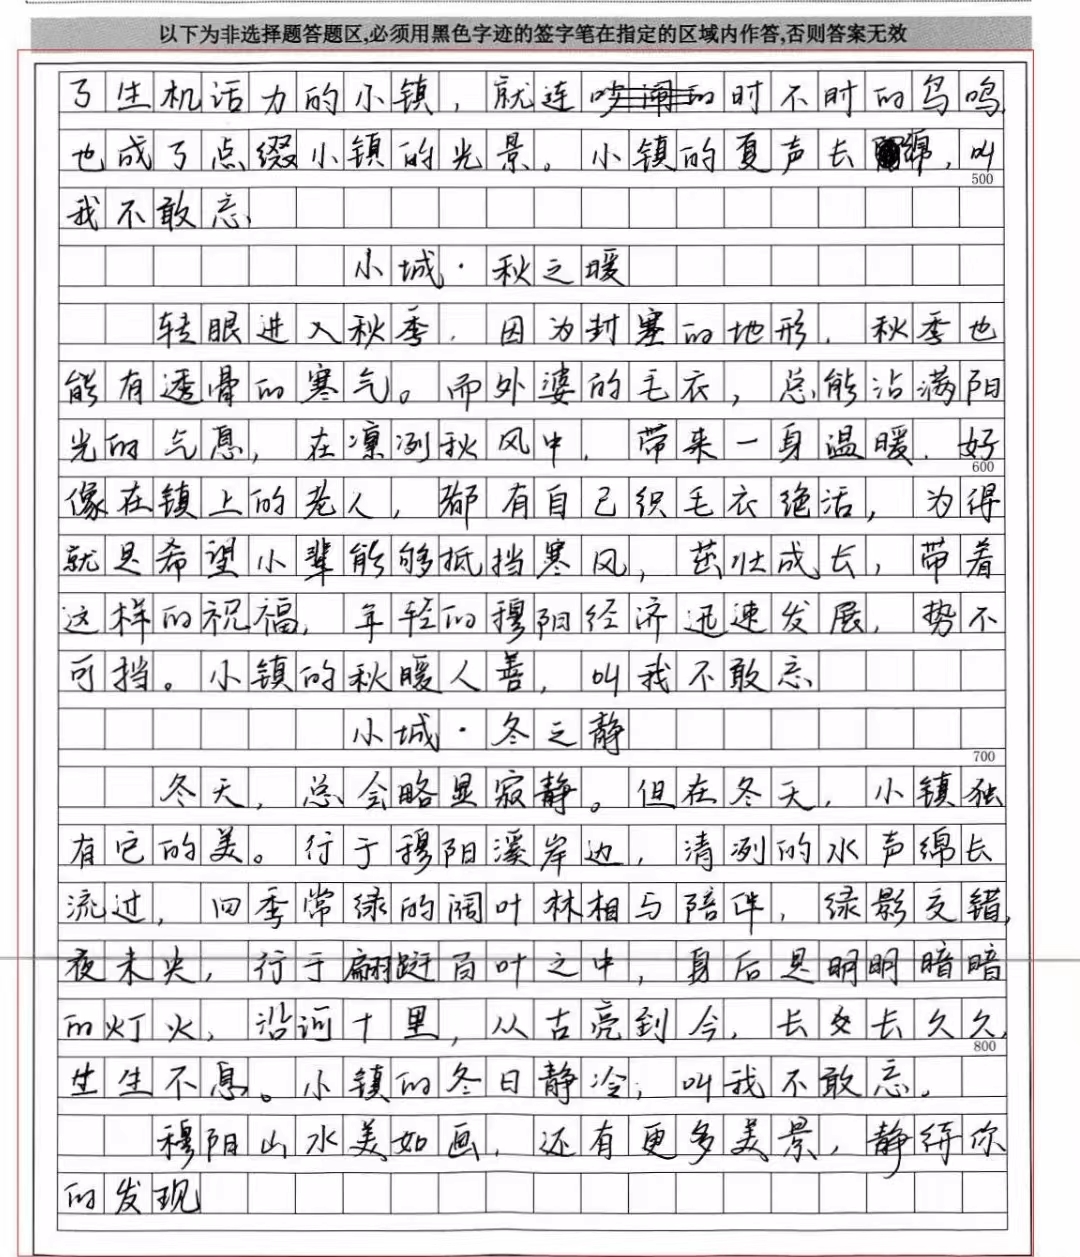 以下为非选择题答题区,必须用黑色字迹的签字笔在指定的区域内作答,否则答案无效
了生机活力的小镇，就连时不时的鸟鸣
也成了点缀小镇的光景。小镇的夏声长绵，叫
500
我不敢忘
小城·秋之暖
转眼进入秋季，因为封塞的地形，秋季也
能有透骨的寒气。而外婆的毛衣，总能沾满阳
光的气息，在凛冽秋风中，带来一身温暖.好
600
像在镇上的老人，都有自己织毛衣绝活，为得
就是希望小辈能够抵挡寒风，茁壮成长，带着
这样的祝福，年轻的穆阳经济迅速发展，势不
可挡。小镇的秋暖人善，叫我不敢忘
小城·冬之静
700
冬天，总会略显寂静。但在冬天，小镇独
有它的美。行于穆阳溪岸边，清冽的水声绵长
流过，四季常绿的阔叶林相与陪伴，绿影交错，
夜未央，行于翩跹百叶之中，身后是明明暗暗
的灯火，沿河十里，从古亮到今，长长久久，
800
生生不息。小镇的冬日静冷，叫我不敢忘。
穆阳山水美如画，还有更多美景，静待你
的发现